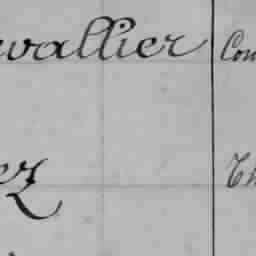 evallier Com
ez Th